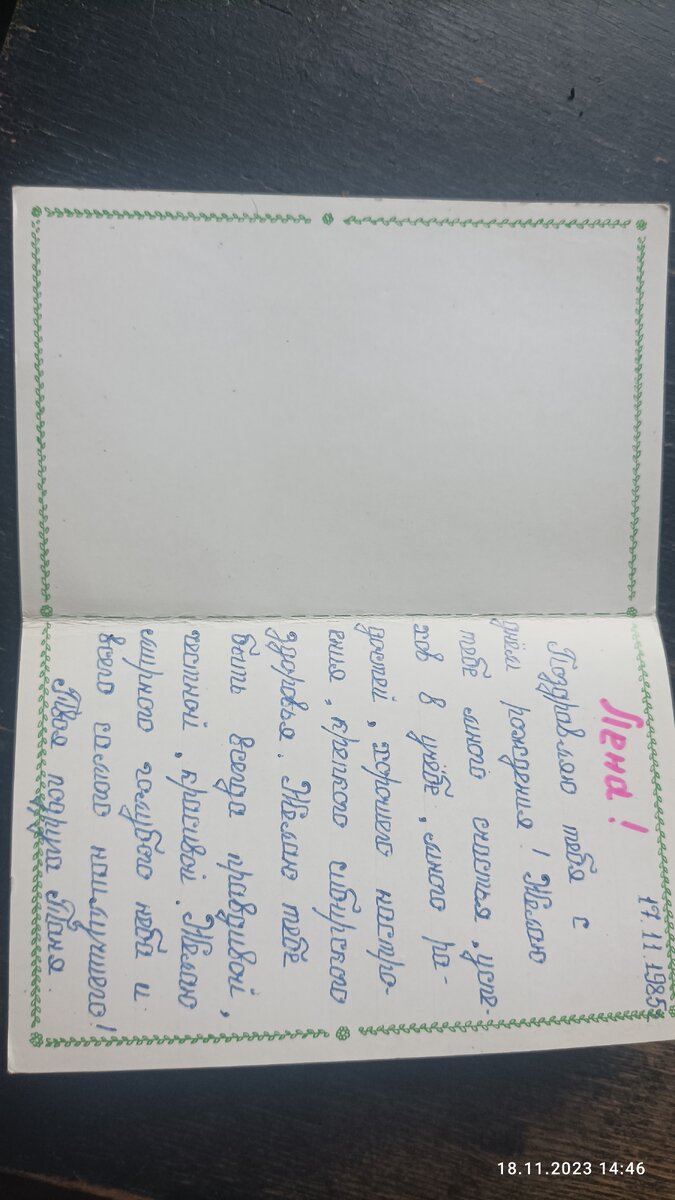 17.11.1985
Лена!
Поздравляю тебя с
днём рождения! Желаю
тебе много счастья, успе-
хов в учёбе, много ра-
достей, хорошего настро-
ения, крепкого сибирского
здоровья. Желаю тебе
быть всегда правдивой,
честной, красивой. Желаю
мирного голубого неба и
всего самого наилучшего!
Твоя подруга Таня.
18.11.2023 14:46